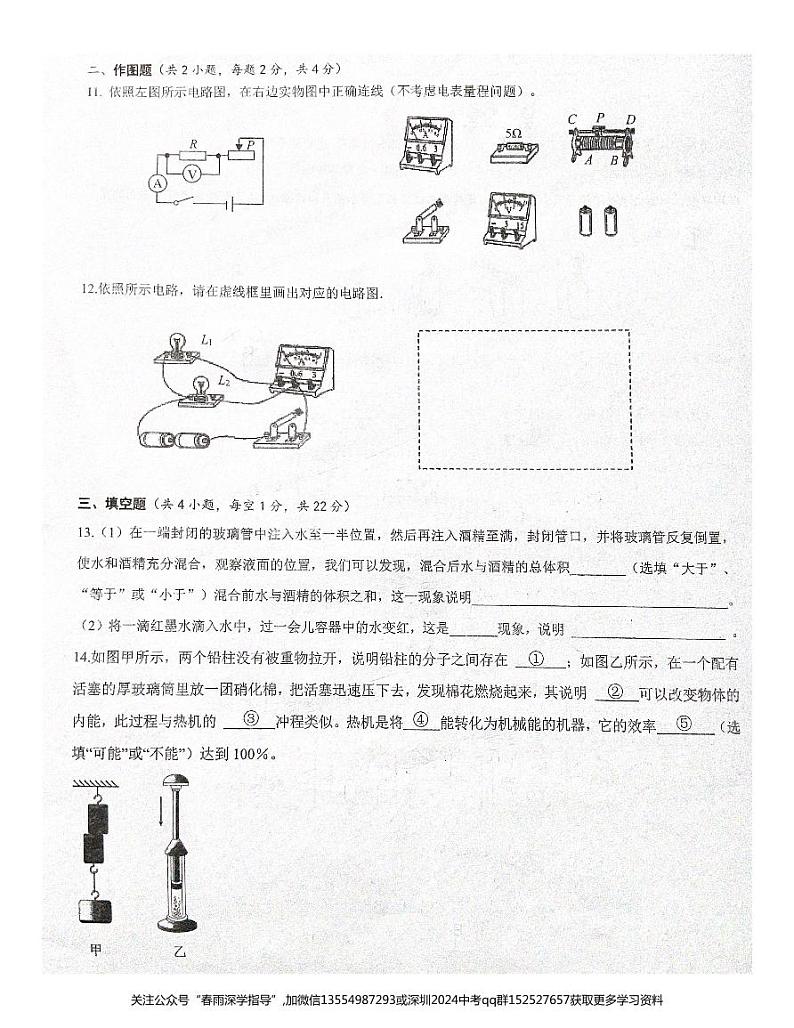 二、作图题（共2小题，每题2分，共4分）
11. 依照左图所示电路图，在右边实物图中正确连线（不考虑电表量程问题）。
R P
V
A
A
- 0.6 3
5Ω
C P D
A B
V
- 3 15
12.依照所示电路，请在虚线框里画出对应的电路图.
L1
L2
A
- 0.6 3
三、填空题（共4小题，每空1分，共22分）
13.（1）在一端封闭的玻璃管中注入水至一半位置，然后再注入酒精至满，封闭管口，并将玻璃管反复倒置，
使水和酒精充分混合，观察液面的位置，我们可以发现，混合后水与酒精的总体积________（选填“大于”、
“等于”或“小于”）混合前水与酒精的体积之和，这一现象说明________________________________。
（2）将一滴红墨水滴入水中，过一会儿容器中的水变红，这是_______现象，说明 ______________________ 。
14.如图甲所示，两个铅柱没有被重物拉开，说明铅柱的分子之间存在 ① ；如图乙所示，在一个配有
活塞的厚玻璃筒里放一团硝化棉，把活塞迅速压下去，发现棉花燃烧起来，其说明 ② 可以改变物体的
内能，此过程与热机的 ③ 冲程类似。热机是将 ④ 能转化为机械能的机器，它的效率 ⑤ （选
填“可能”或“不能”）达到 100％。
甲 乙
关注公众号“春雨深学指导”,加微信13554987293或深圳2024中考qq群152527657获取更多学习资料